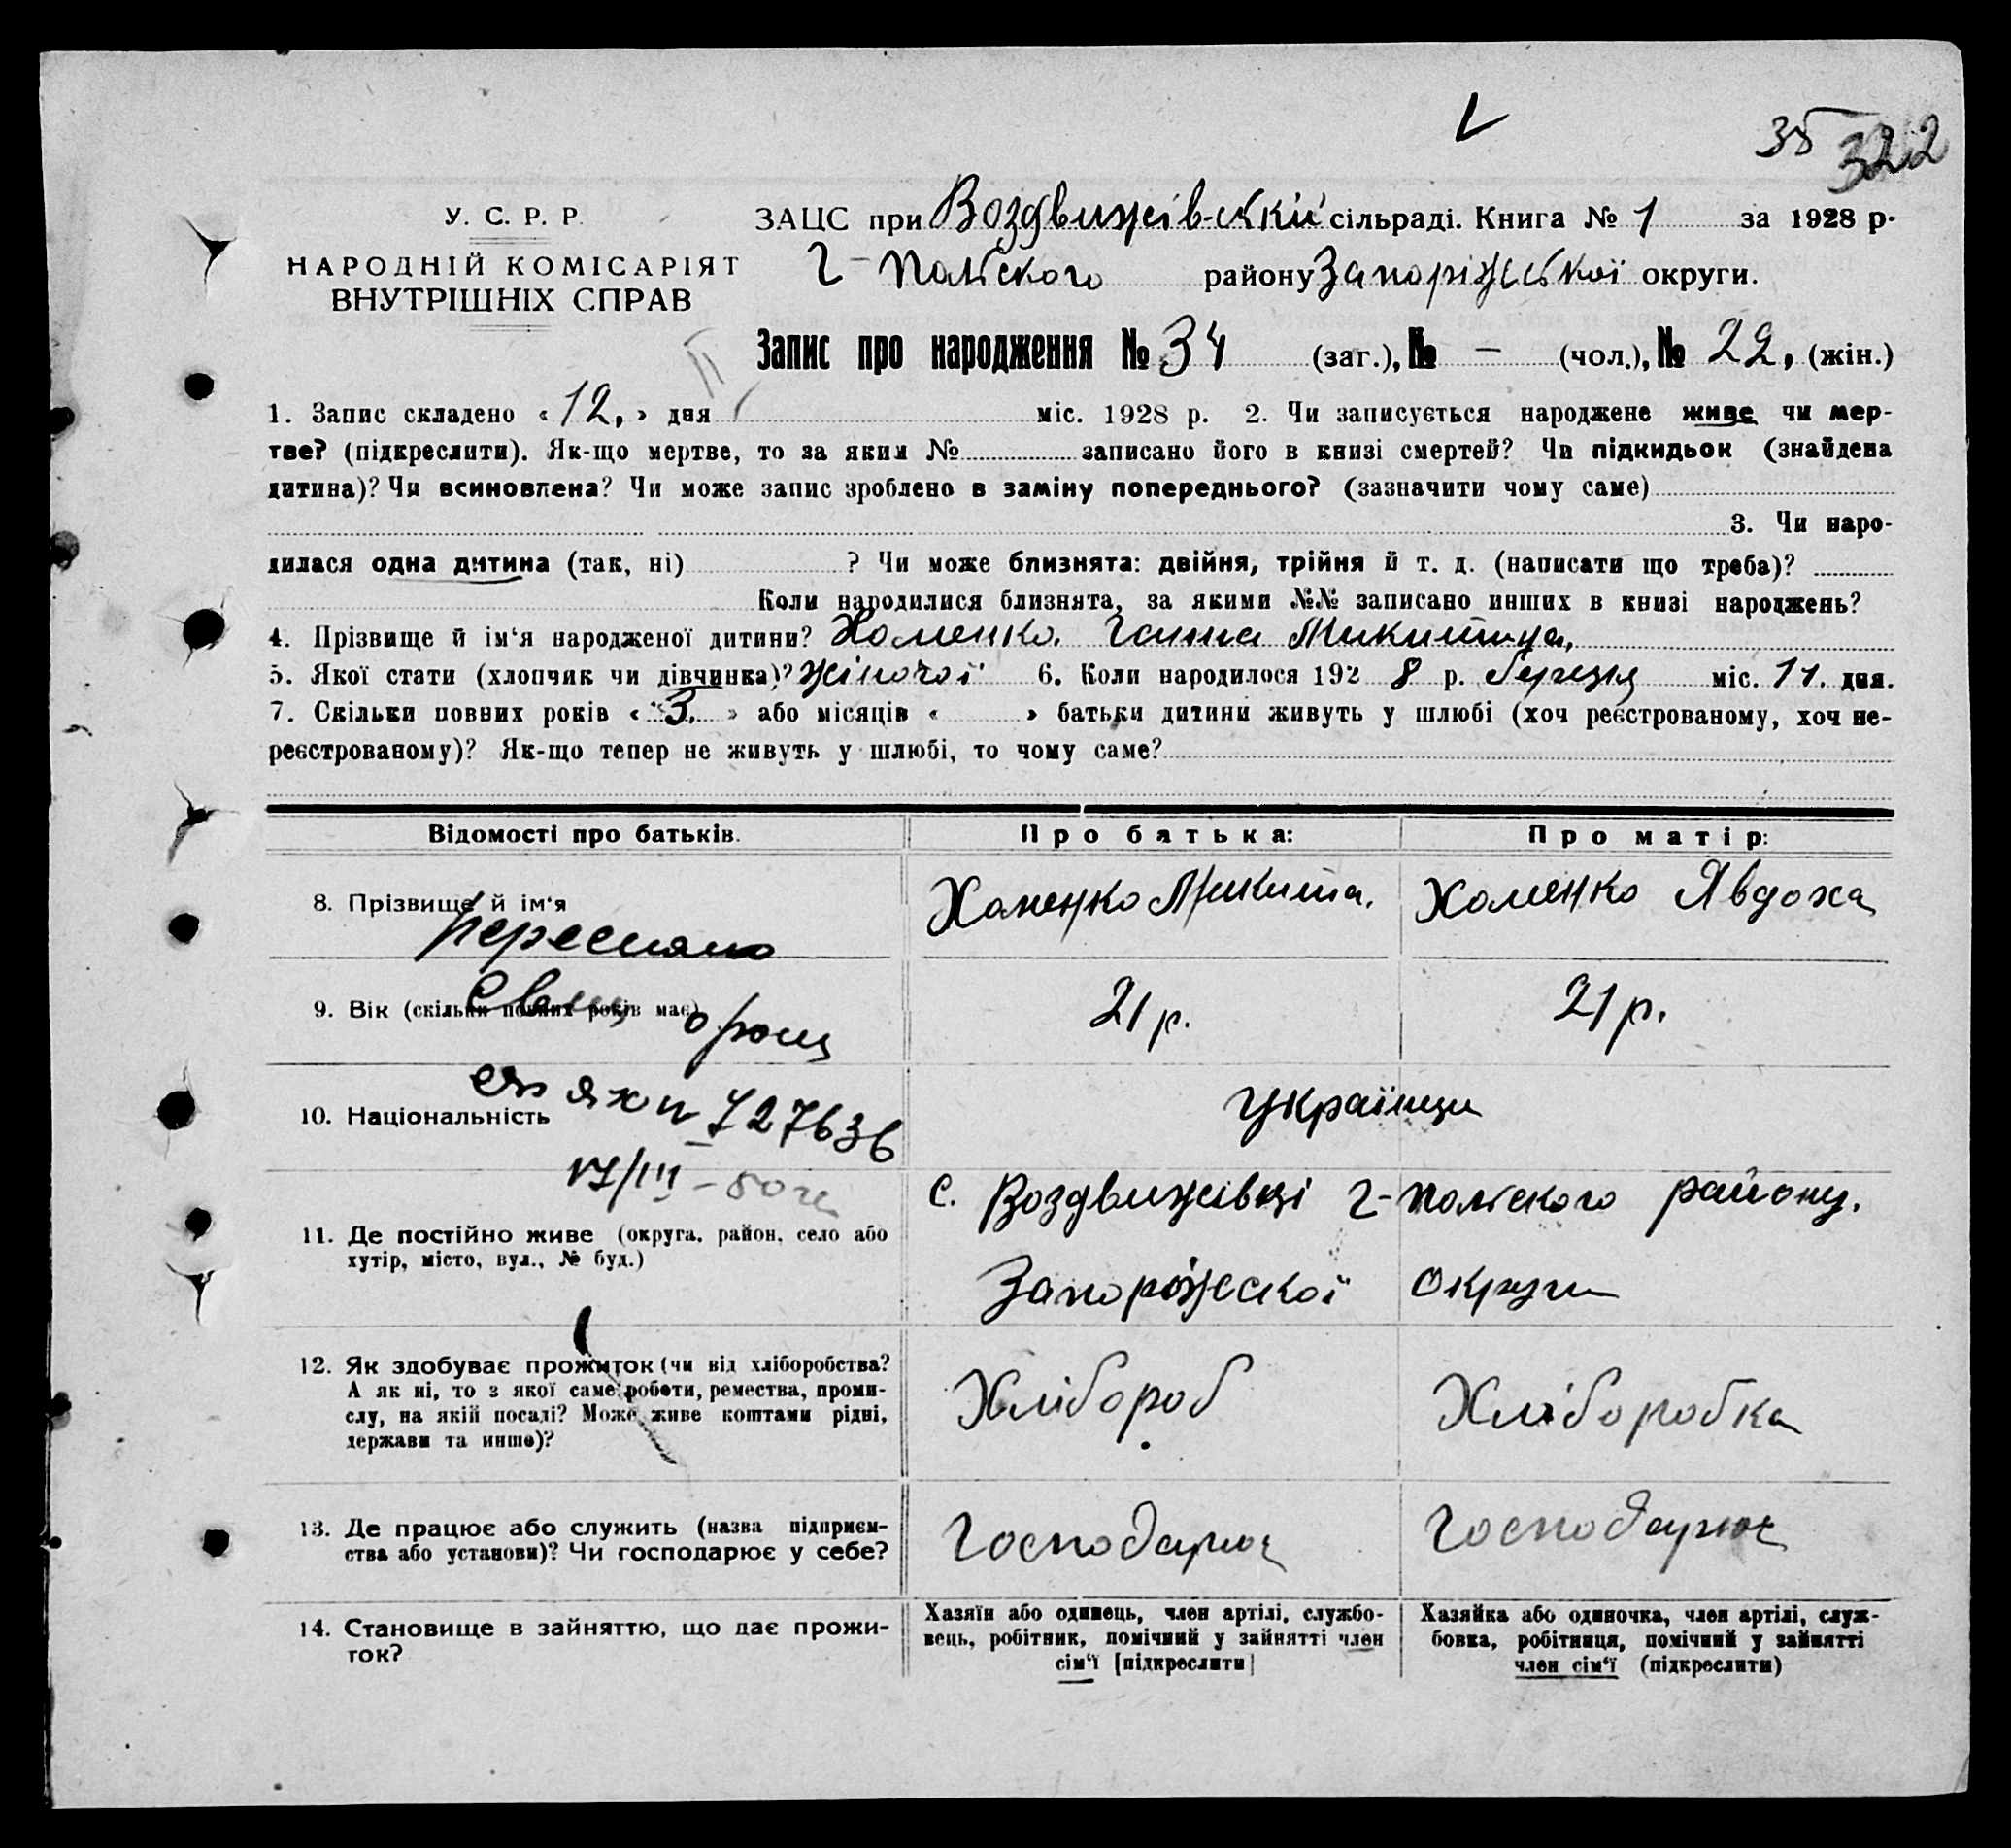 35 322
У. С. Р. Р.
НАРОДНІЙ КОМІСАРІЯТ
ВНУТРІШНІХ СПРАВ
ЗАЦС при Воздвижівській сільраді. Книга № 1 за 1928 р.
Г-Польского району Запоріжської округи.
Запис про народження № 34 (заг.), № — (чол.), № 22, (жін.)
1. Запис складено «12,» дня міс. 1928 р. 2. Чи записується народжене живе чи мер-
тве? (підкреслити). Як-що мертве, то за яким № записано його в книзі смертей? Чи підкидьок (знайдена
дитина)? Чи всиновлена? Чи може запис зроблено в заміну попереднього? (зазначити чому саме)
3. Чи наро-
дилася одна дитина (так, ні) ? Чи може близнята: двійня, трійня й т. д. (написати що треба)?
Коли народилися близнята, за якими №№ записано инших в книзі народжень?
4. Прізвище й ім‘я народженої дитини? Хоменко. Ганна Микитица,
5. Якої стати (хлопчик чи дівчинка)? жіночої 6. Коли народилося 192 8 р. березня міс. 11. дня.
7. Скільки повних років «3,» або місяців « » батьки дитини живуть у шлюбі (хоч реєстрованому, хоч не-
реєстрованому)? Як-що тепер не живуть у шлюбі, то чому саме?
Відомості про батьків. Про батька: Про матір:
8. Прізвище й ім‘я Хоменко Микита. Хоменко Явдоха
9. Вік (скільки повних років має) 21 р. 21 р.
10. Національність українци
727636
17/III - 50
11. Де постійно живе (округа, район, село або
хутір, місто, вул., № буд.)
с. Воздвижівці Г-Польского району.
Запоріжской Округи
12. Як здобуває прожиток (чи від хліборобства?
А як ні, то з якої саме роботи, ремества, проми-
слу, на якій посаді? Може живе коштами рідні,
держави та инше)?
Хлібороб Хліборобка
13. Де працює або служить (назва підприєм-
ства або установи)? Чи господарює у себе?
Господарює Господарює
14. Становище в зайняттю, що дає прожи-
ток?
Хазяїн або одинець, член артілі, службо-
вець, робітник, помічний у зайнятті член
сім‘ї [підкреслити]
Хазяйка або одиночка, член артілі, служ-
бовка, робітниця, помічний у зайнятті
член сім‘ї (підкреслити)